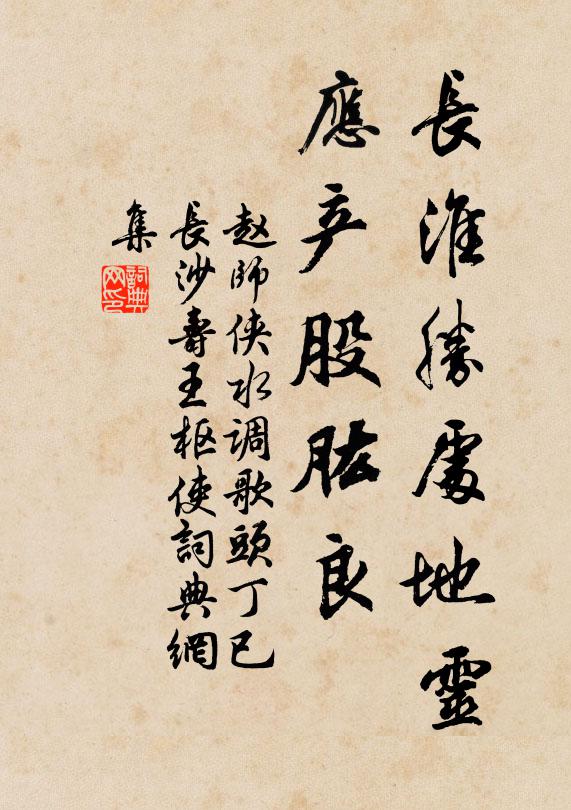 長淮勝處地靈
應产股肱良
赵師侠水调歌頭丁已
長沙壽王枢使詞典網
集
詞典网印